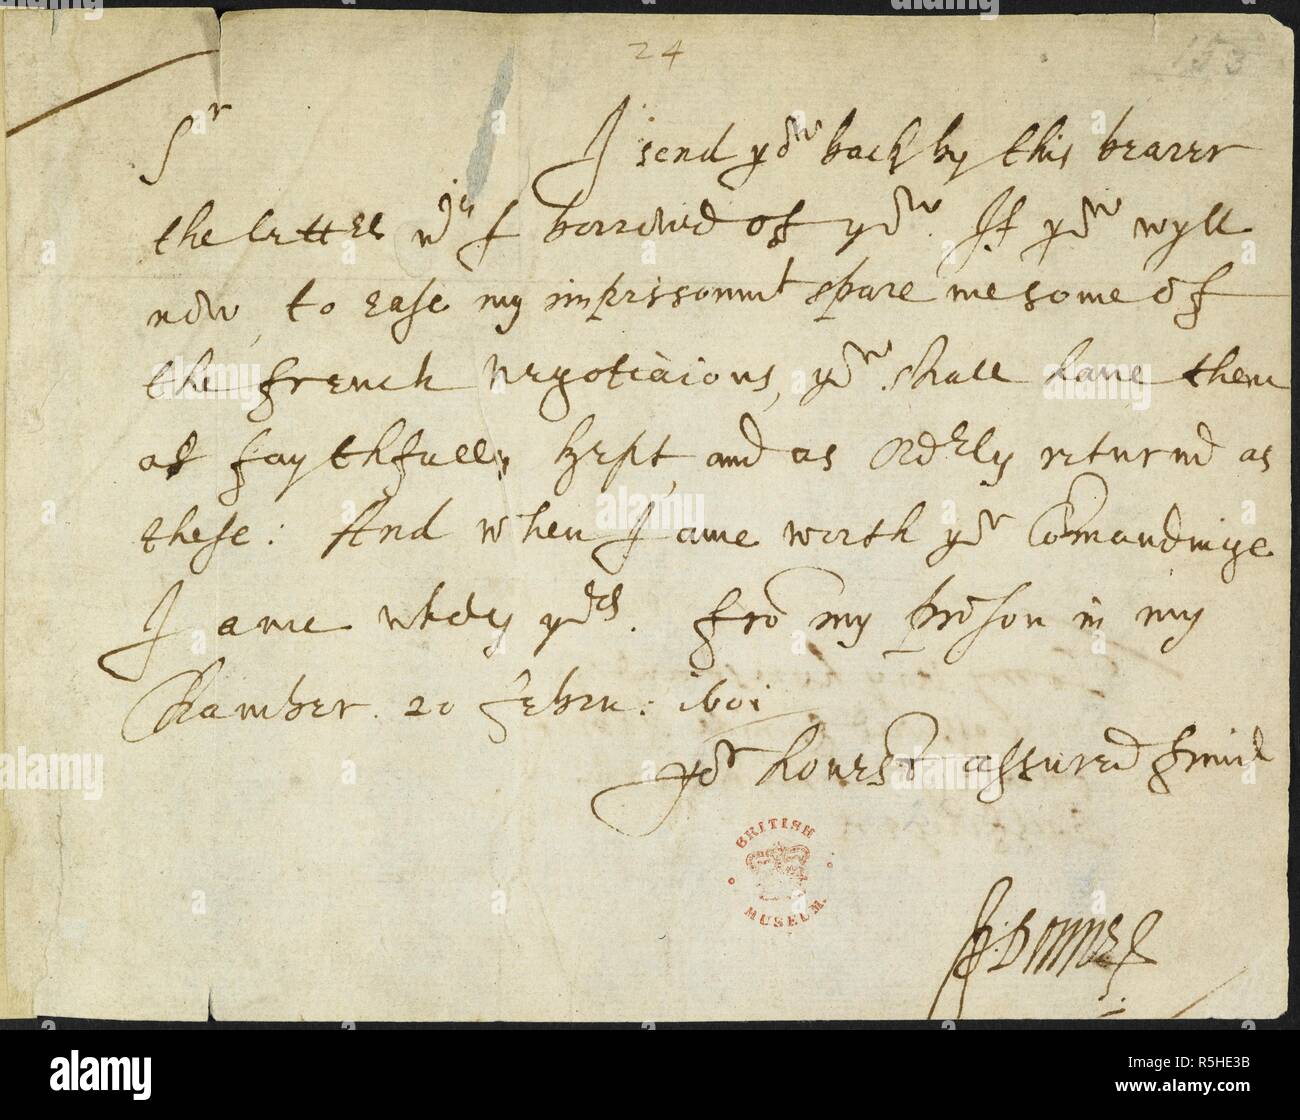 24
153
Sr
I send yow back by this bearer
the letter wch I borrowed of yow. If yow wyll
now, to ease my imprisonmt spare me some of
the french negotiacions, yow shall have them
as faythfully kept, and as orderly returnd as
these: And when I ame worth yor Commandinge
I ame wholy yors. fro my prison in my
Chamber. 20 Febru: 1601
yor honest assured frind
J: Donne
BRITISH
MUSEUM.
alamy
Image ID: R5HE3B
www.alamy.com